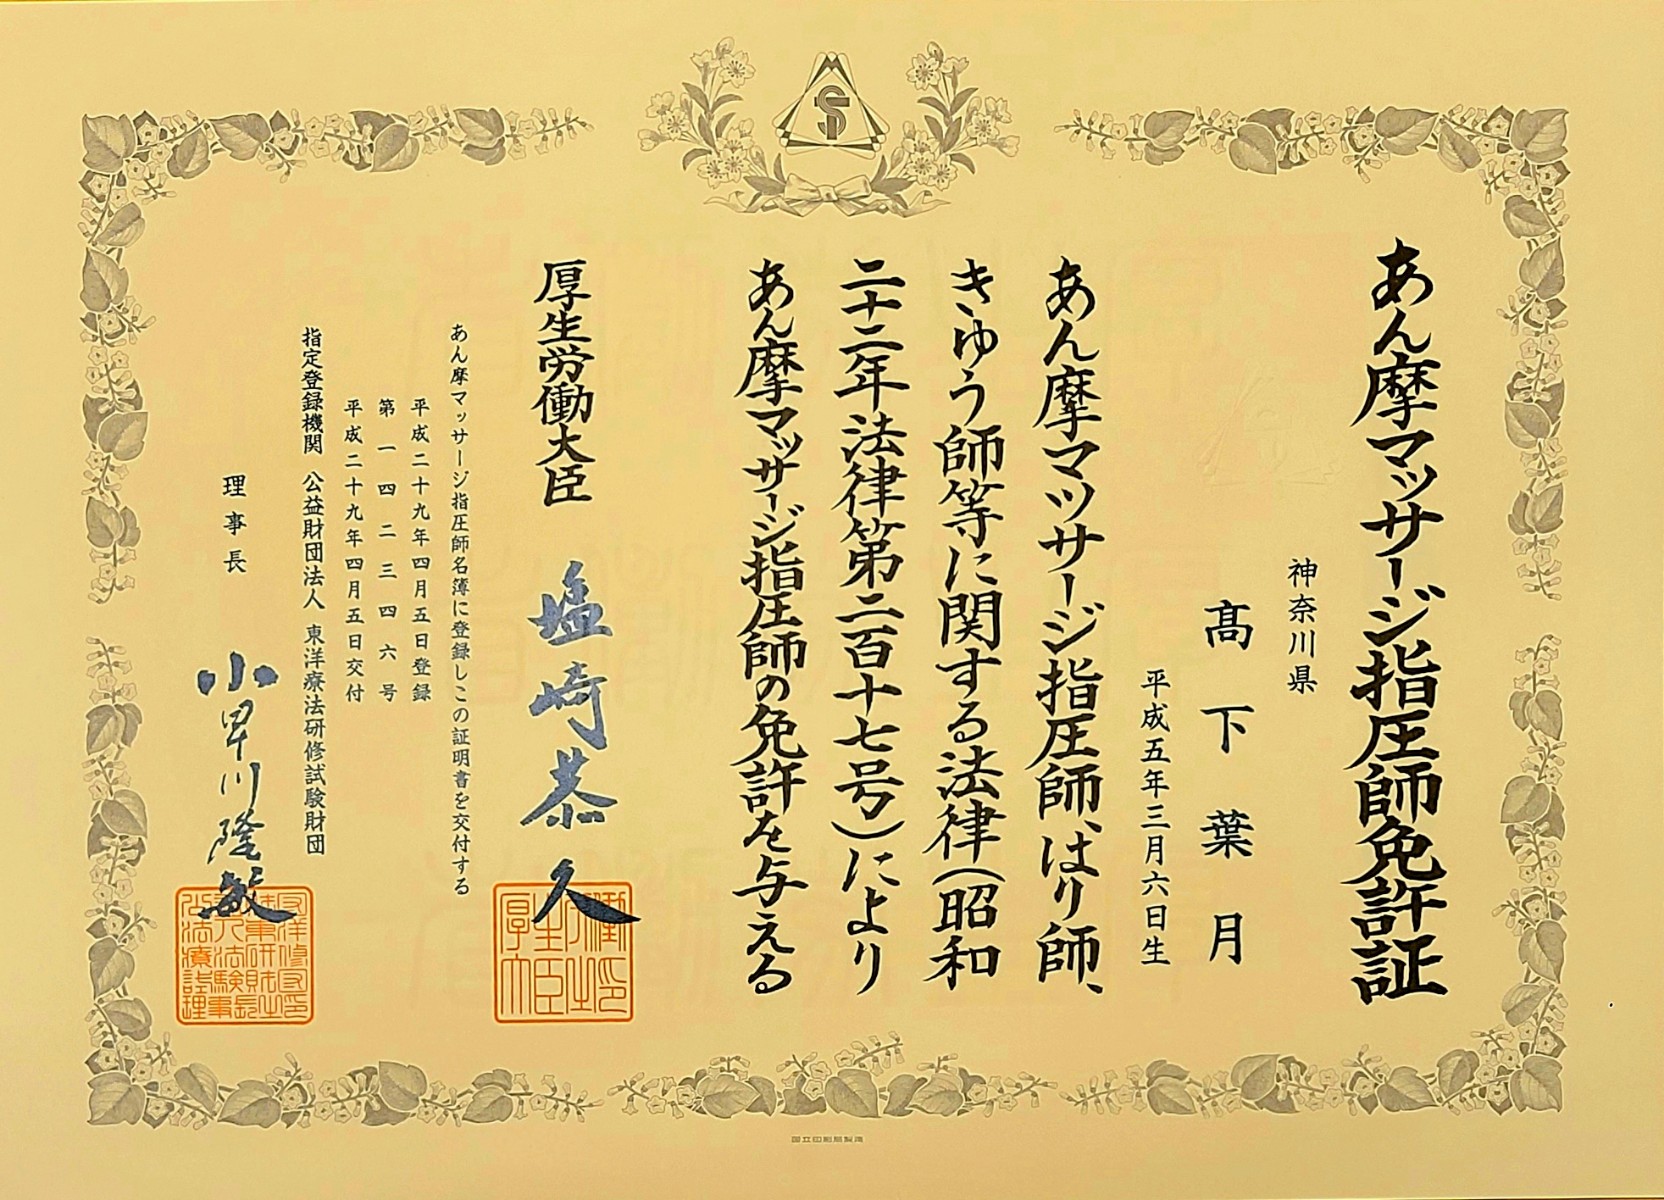 あん摩マッサージ指圧師免許証
神奈川県
髙下葉月
平成五年三月六日生
あん摩マツサージ指圧師、はり師、
きゆう師等に関する法律(昭和
二十二年法律第二百十七号)により
あん摩マッサージ指圧師の免許を与える
厚生労働大臣 塩崎恭久
あん摩マッサージ指圧師名簿に登録しこの証明書を交付する
平成二十九年四月五日登録
第一四二三四六号
平成二十九年四月五日交付
指定登録機関 公益財団法人 東洋療法研修試験財団
理事長 小早川隆敏
国立印刷局製造